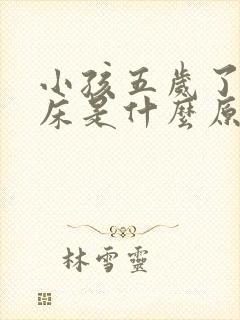 小孩五歲了
床是什麼原
林雪靈